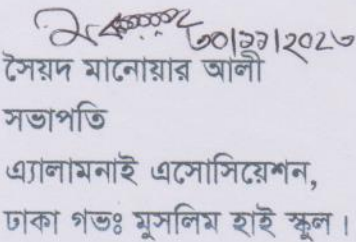 ৩০|১১|২০২৩
সৈয়দ মানোয়ার আলী
সভাপতি
এ্যালামনাই এসোসিয়েশন,
ঢাকা গভঃ মুসলিম হাই স্কুল।